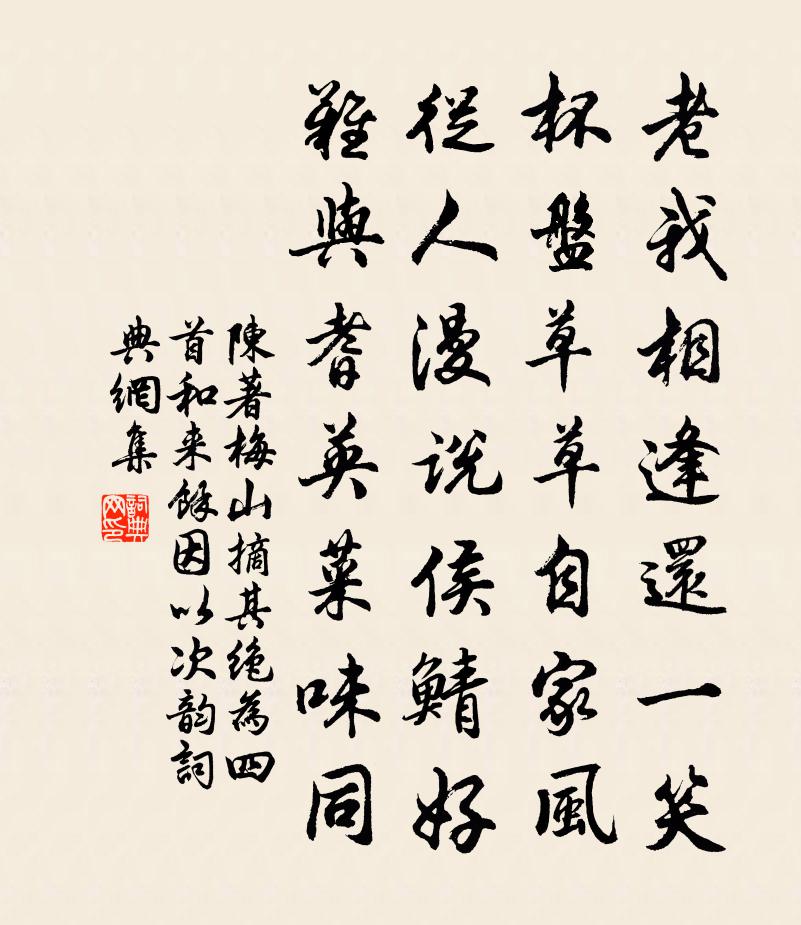 老我相逢還一笑
杯盤草草自家風
從人漫説侯鯖好
難與耆英菜味同
陳著梅山摘其絶為四
首和来餘因以次韵詞
典網集
詞典
网印